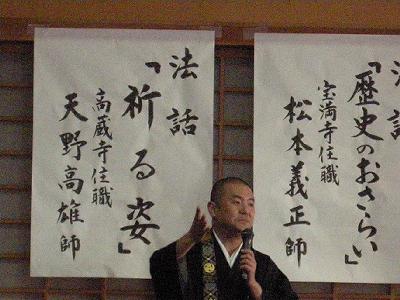 法話
「歴史のおさらい」
宝満寺住職
松本義正師
法話
「祈る姿」
高蔵寺住職
天野高雄師